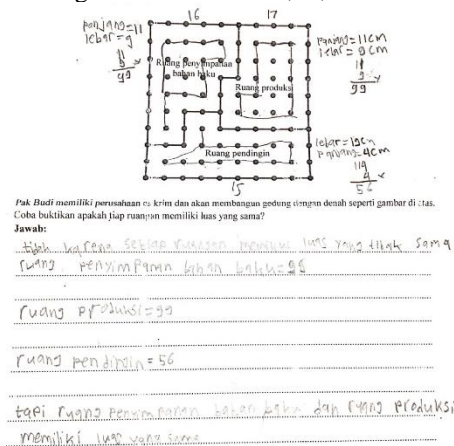 16 17
panjang=11
lebar=9
11
9 x
99
panjang=11cm
lebar=9cm
11
9 x
99
Ruang penyimpanan
bahan baku
Ruang produksi
Ruang pendingin
lebar=
panjang=4cm
4 x
56
15
Pak Budi memiliki perusahaan es krim dan akan membangun gedung dengan denah seperti gambar di atas.
Coba buktikan apakah tiap ruangan memiliki luas yang sama?
Jawab:
tidak karena setiap ruangan memiliki luas yang tidak sama
ruang penyimpanan bahan baku=99
ruang produksi=99
ruang pendingin=56
tapi ruang penyimpanan bahan baku dan ruang produksi
memiliki luas yang sama